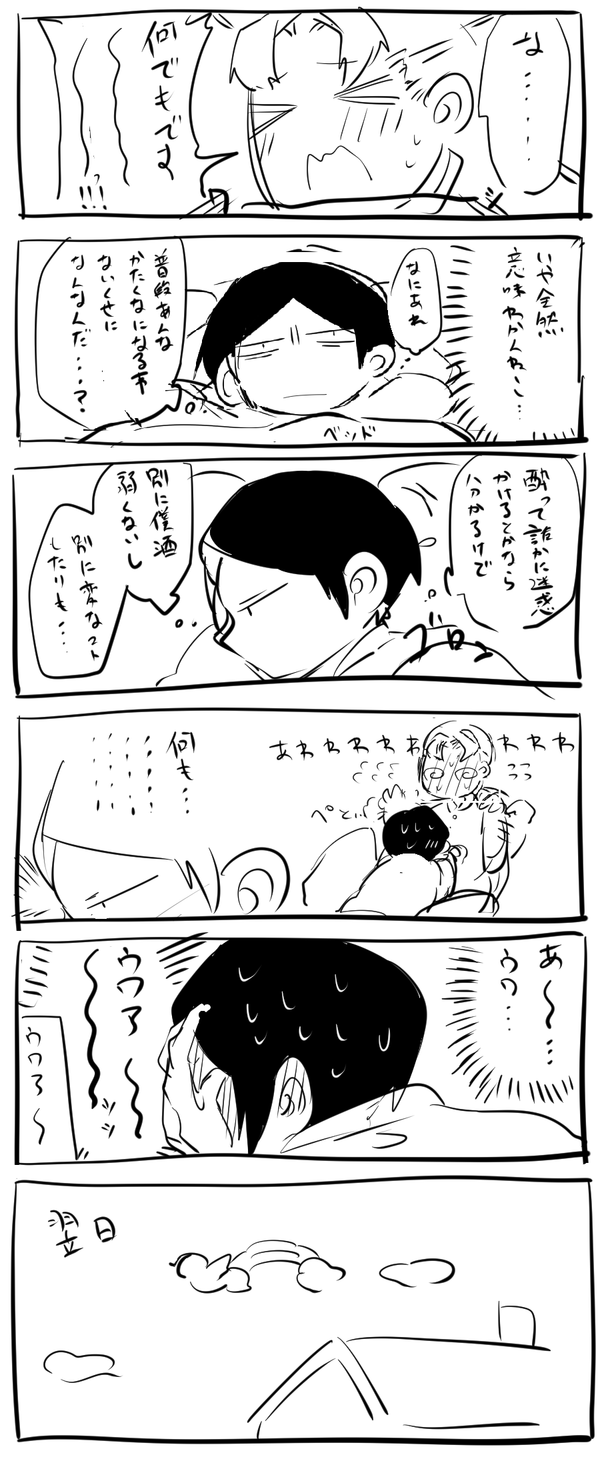 な‥‥‥
何でもです
〜〜〜っ!!!
いや全然
意味わかんねーし…
なにあれ
普段あんな
かたくなになる事
ないくせに
なんなんだ…?
ベッド
酔って誰かに迷惑
かけるとかなら
ハァかるけど
別に僕酒
弱くないし
別に変なコト
したりも…
ゴロ
あわわわわわわわわ
ぺとぃ
何も…
あ〜…
ウワ…
ウワァ〜〜
ウワァ〜
翌日